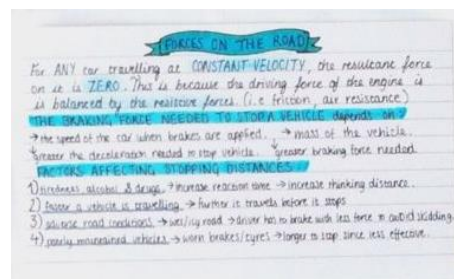 FORCES ON THE ROAD
For ANY car travelling at CONSTANT VELOCITY, the resultant force
on it is ZERO. This is because the driving force of the engine is
is balanced by the resistive forces. (i.e friction, air resistance)
THE BRAKING FORCE NEEDED TO STOP A VEHICLE depends on:
→ the speed of the car when brakes are applied. → mass of the vehicle.
↓greater the deceleration needed to stop vehicle. ↓greater braking force needed.
FACTORS AFFECTING STOPPING DISTANCES:
1) tiredness, alcohol & drugs → increase reaction time → increase thinking distance.
2) faster a vehicle is travelling → further it travels before it stops
3) adverse road conditions → wet/icy road → driver has to brake with less force to avoid skidding.
4) poorly maintained vehicles → worn brakes/tyres → longer to stop since less effective.